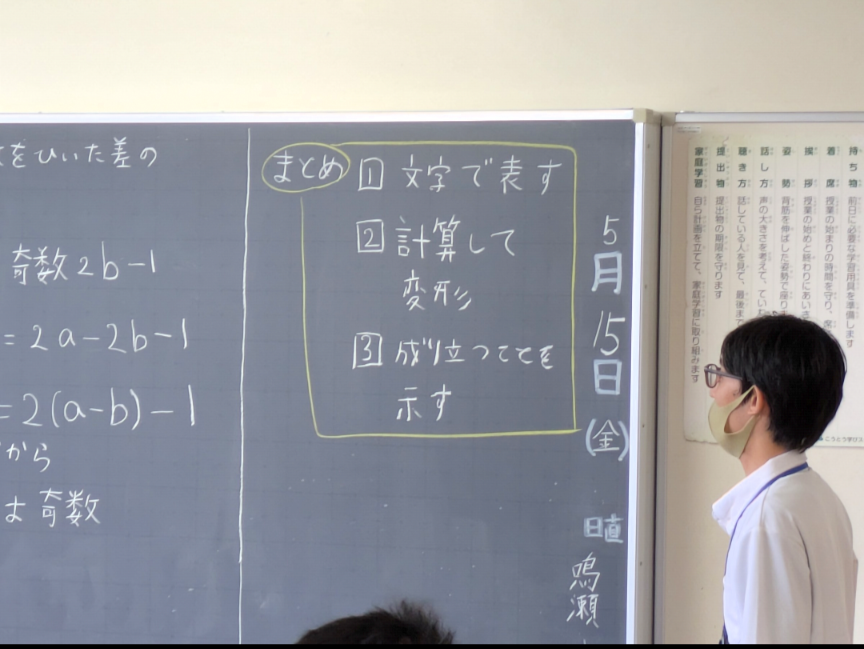 をひいた差の
奇数2b-1
=2a-2b-1
=2(a-b)-1
から
は奇数
まとめ
1 文字で表す
2 計算して
変形
3 成り立つことを
示す
5月15日(金)
日直
鳴瀬
持ち物 前日に必要な学習用具を準備します
着席 授業の始まりの時間を守り、
挨拶 授業の始めと終わりにあいさ
姿勢 背筋を伸ばした姿勢で座り
話し方 声の大きさを考えて、ていね
聴き方 話している人を見て、最後まで
提出物 提出物の期限を守ります
家庭学習 自ら計画を立てて、家庭学習に取り組みます
こうとう学びス